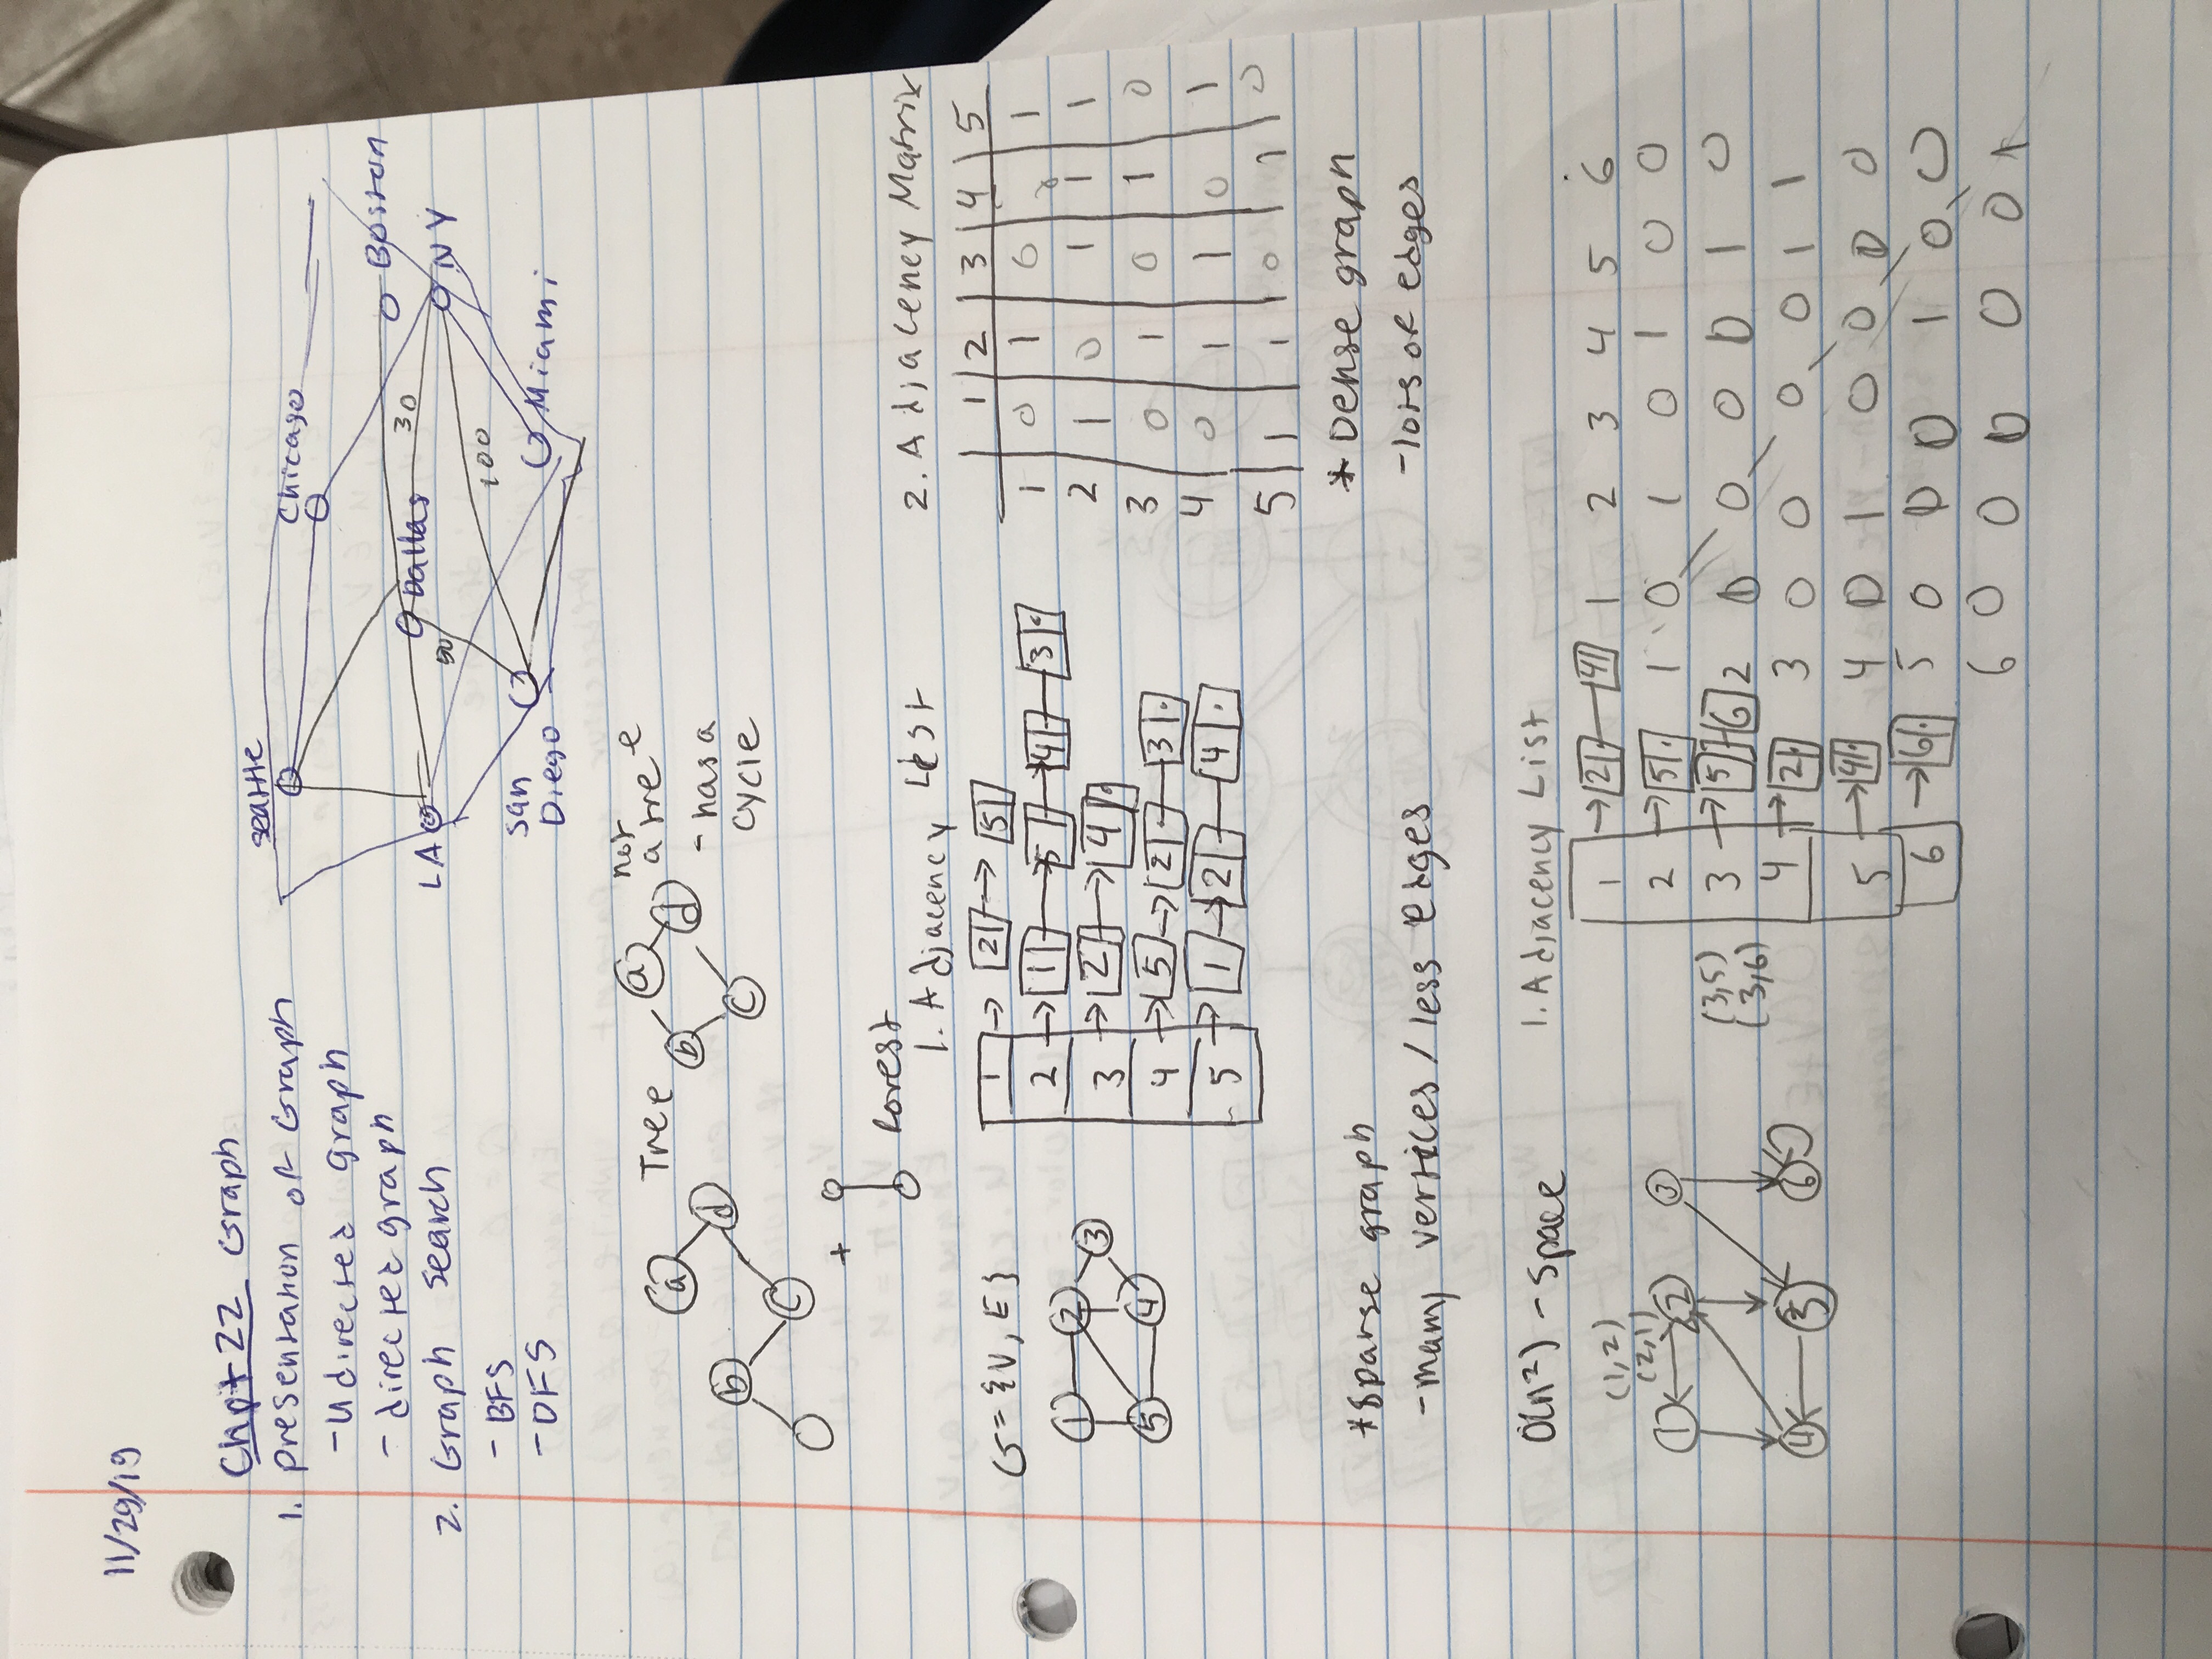 11/29/19
Chpt 22 Graph
1. presentation of Graph
- Udirected graph
- directed graph
2. Graph search
- BFS
- DFS
seattle
Chicago
Boston
LA
Dallas
30
NY
50
100
San
Diego
Miami
a
Tree
b
d
c
a
not
a tree e
b
d
- has a
c
cycle
+
forest
G = {V, E}
1 2 3
5 4
1. Adjacency List
1 → 2 → 5
2 → 1 → 5 → 4 — 3
3 → 2 → 4
4 → 5 → 2 — 3
5 → 1 → 2 — 4
2. Adjaceney Matrix
1 2 3 4 5
1 0 1 0 0 1
2 1 0 1 1 1
3 0 1 0 1 0
4 0 1 1 0 1
5 1 1 0 1 0
* Sparse graph
- many vertices / less edges
* Dense graph
- lots of edges
O(n²) - space
(1,2)
(2,1)
1 2 3
4 5 6
1. Adjacency List
(3,5)
(3,6)
1 → 2 — 4
2 → 5
3 → 5 6
4 → 2
5 → 4
6 → 6
1 2 3 4 5 6
1 0 1 0 1 0 0
2 0 0 0 0 1 0
3 0 0 0 0 1 1
4 0 1 0 0 0 0
5 0 0 0 1 0 0
6 0 0 0 0 0 1